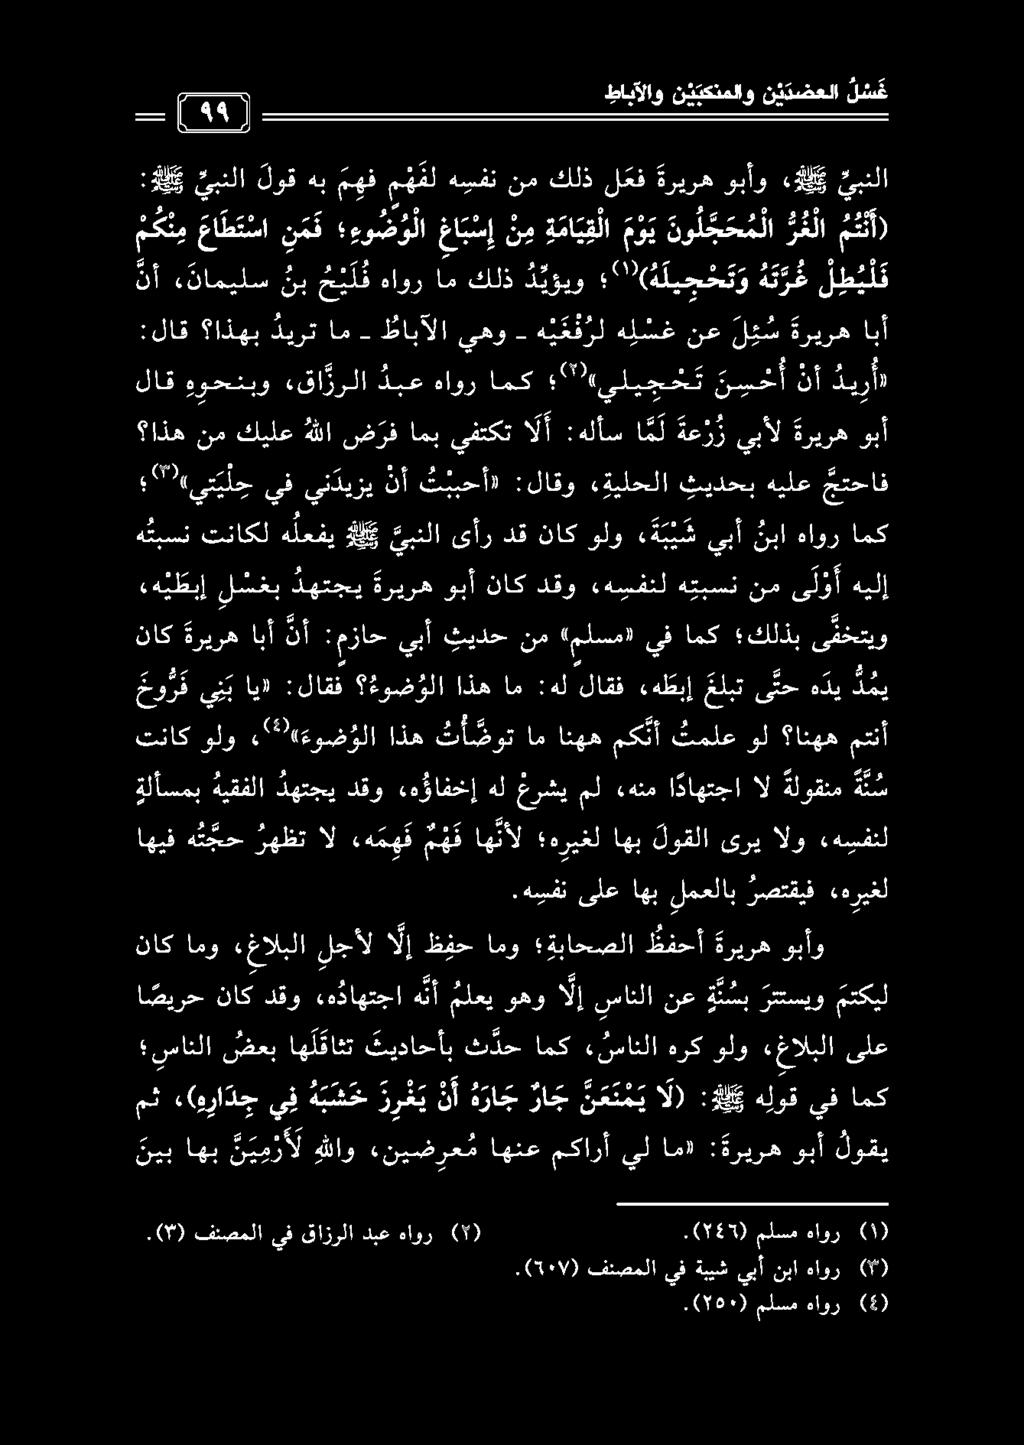 غَسْلُ العضدَيْن والمنكبَيْن والآباطِ
٩٩
النبيِّ ﷺ، وأبو هريرةَ فعَل ذلك من نفسِه لفَهْمٍ فهِمَ به قولَ النبيِّ ﷺ:
(أَنْتُمُ الْغُرُّ الْمُحَجَّلُونَ يَوْمَ الْقِيَامَةِ مِنْ إِسْبَاغِ الْوُضُوءِ؛ فَمَنِ اسْتَطَاعَ مِنْكُمْ
فَلْيُطِلْ غُرَّتَهُ وَتَحْجِيلَهُ)(١)؛ ويؤيِّدُ ذلك ما رواه فُلَيْحُ بنُ سليمانَ، أنَّ
أبا هريرةَ سُئِلَ عن غسْلِه لرُفْغَيْه ـ وهي الآباطُ ـ ما تريدُ بهذا؟ قال:
«أُرِيدُ أنْ أُحْسِنَ تَحْجِيلي»(٢)؛ كما رواه عبدُ الرزَّاق، وبنحوِهِ قال
أبو هريرةَ لأبي زُرْعةَ لَمَّا سأله: أَلَا تكتفي بما فرَض اللهُ عليك من هذا؟
فاحتجَّ عليه بحديثِ الحليةِ، وقال: «أحببْتُ أنْ يزيدَني في حِلْيَتي»(٣)؛
كما رواه ابنُ أبي شَيْبَةَ، ولو كان قد رأى النبيَّ ﷺ يفعلُه لكانت نسبتُه
إليه أَوْلَى من نسبتِه لنفسِه، وقد كان أبو هريرةَ يجتهدُ بغسْلِ إبطَيْه،
ويتخفَّى بذلك؛ كما في «مسلمٍ» من حديثِ أبي حازمٍ: أنَّ أبا هريرةَ كان
يمُدُّ يدَه حتَّى تبلغَ إبطَه، فقال له: ما هذا الوُضوءُ؟ فقال: «يا بَنِي فَرُّوخَ
أنتم ههنا؟ لو علمتُ أنَّكم ههنا ما توضَّأْتُ هذا الوُضوءَ»(٤)، ولو كانت
سُنَّةً منقولةً لا اجتهادًا منه، لم يشرعْ له إخفاؤُه، وقد يجتهدُ الفقيهُ بمسألةٍ
لنفسِه، ولا يرى القولَ بها لغيرِه؛ لأنَّها فَهْمٌ فَهِمَه، لا تظهرُ حجَّتُه فيها
لغيرِه، فيقتصرُ بالعملِ بها على نفسِه.
وأبو هريرةَ أحفظُ الصحابةِ؛ وما حفِظ إلَّا لأجلِ البلاغِ، وما كان
ليكتمَ ويستترَ بسُنَّةٍ عن الناسِ إلَّا وهو يعلمُ أنَّه اجتهادُه، وقد كان حريصًا
على البلاغِ، ولو كره الناسُ، كما حدَّث بأحاديثَ تثاقَلَها بعضُ الناسِ؛
كما في قولِه ﷺ: (لَا يَمْنَعَنَّ جَارٌ جَارَهُ أَنْ يَغْرِزَ خَشَبَهُ فِي جِدَارِهِ)، ثم
يقولُ أبو هريرةَ: «ما لي أراكم عنها مُعرِضين، واللهِ لَأَرْمِيَنَّ بها بينَ
(١) رواه مسلم (٢٤٦).
(٢) رواه عبد الرزاق في المصنف (٣).
(٣) رواه ابن أبي شيبة في المصنف (٦٠٧).
(٤) رواه مسلم (٢٥٠).